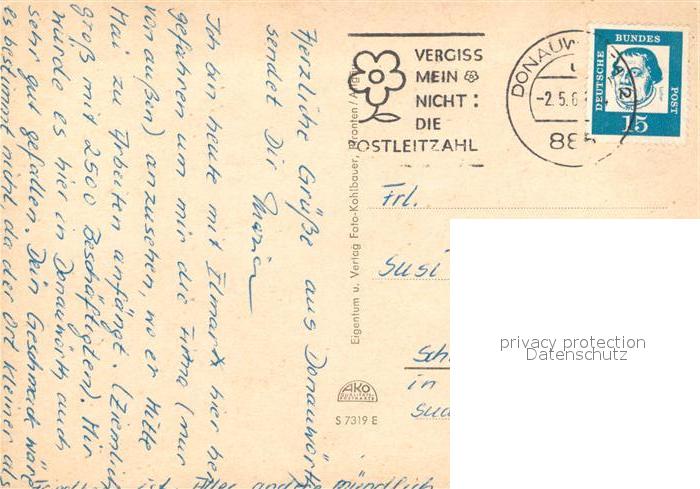 Herzliche Grüße aus Donauwörth
sendet Dir Maria
Ich bin heute mit hier her
gefahren um mir die Firma (nur
von außen) anzusehen, wo er Mitte
Mai zu Arbeiten anfängt. (Ziemlich
groß mit 2500 Beschäftigten). Mir
würde es hier in Donauwörth auch
sehr gut gefallen. Dein Geschmack wär
es bestimmt nicht, da der Ort kleiner als
ist. Alles andere mündlich
VERGISS
MEIN
NICHT:
DIE
POSTLEITZAHL
DONAUW
-2.5.6
885
DEUTSCHE
BUNDES
POST
15
Eigentum u. Verlag Foto-Kohlbauer, Pfronten / Allgäu
Frl.
Susi
Sch
in
AKO
QUALITÄTS-
POSTKARTE
S 7319 E
privacy protection
Datenschutz